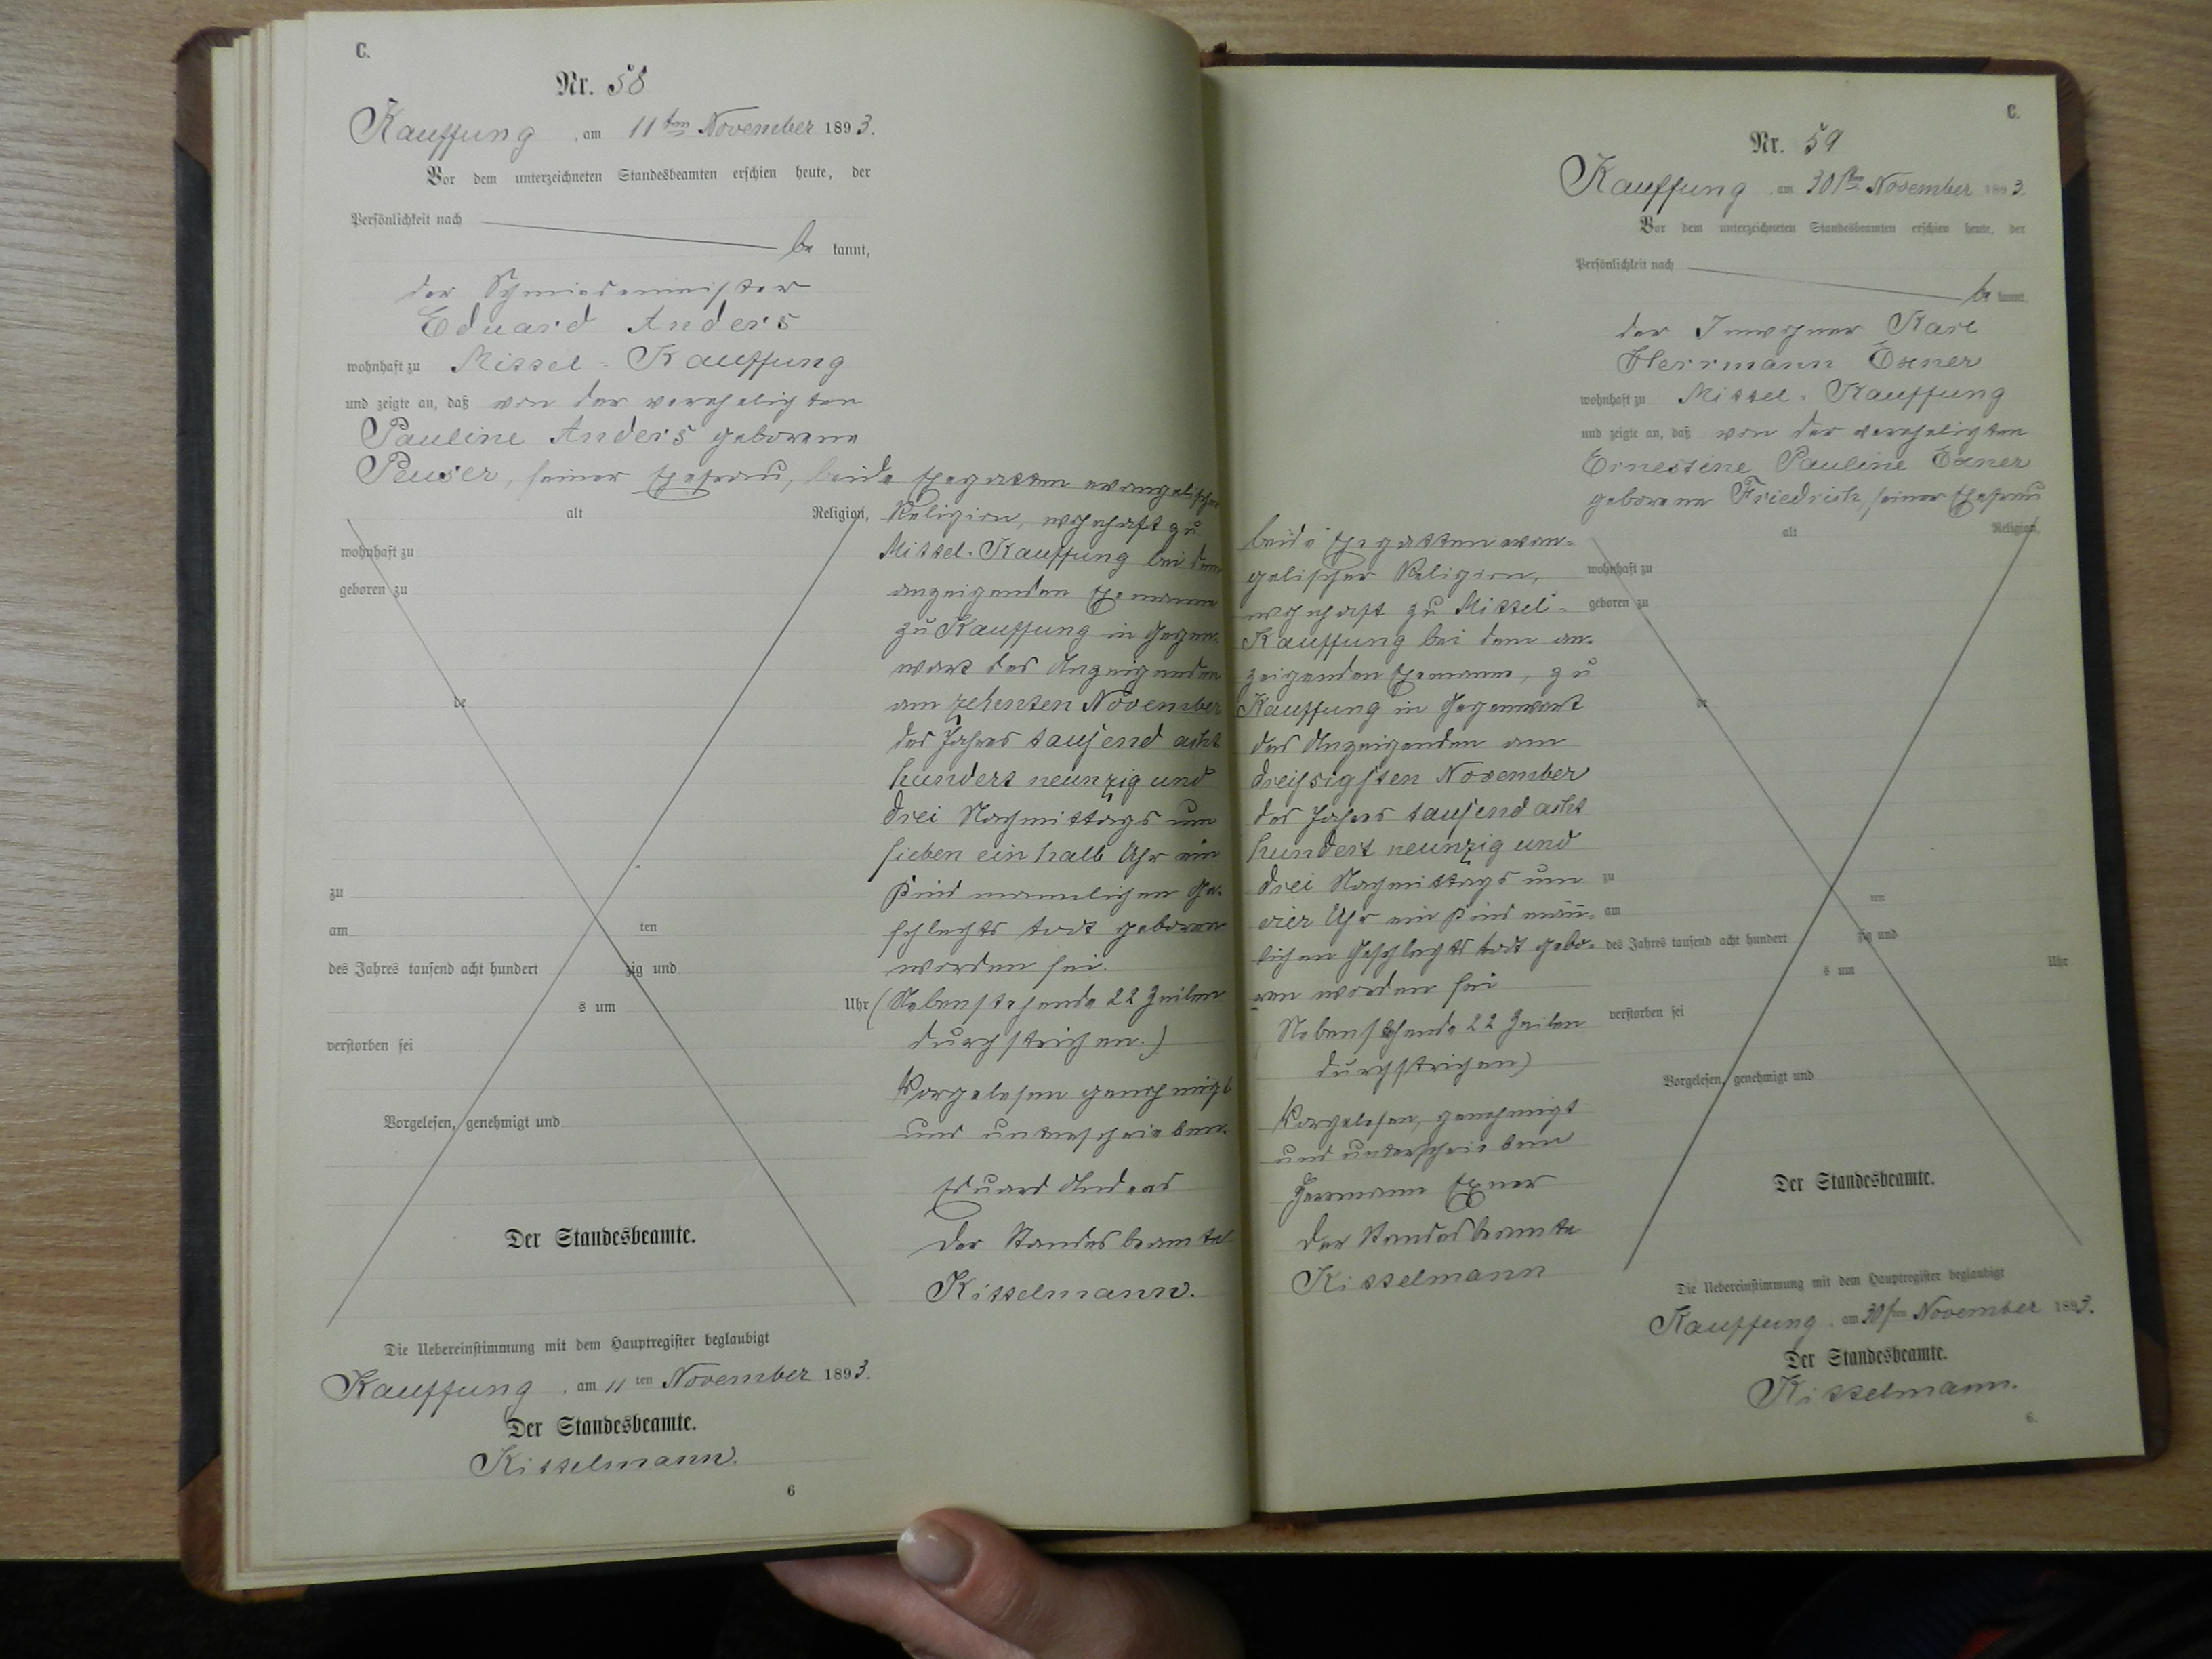 C.
Nr. 58
Kauffung, am 11ten November 1893.
Vor dem unterzeichneten Standesbeamten erschien heute, der
Persönlichkeit nach
be kannt,
der Schmiedemeister
Eduard Anders
wohnhaft zu Mittel-Kauffung
und zeigte an, daß von der verehelichten
Pauline Anders geborene
Peuser, seiner Ehefrau, beide Ehegatten evangelischer
alt Religion, Religion, wohnhaft zu
wohnhaft zu Mittel-Kauffung bei dem
geboren zu anzeigenden Ehemanne
zu Kauffung in Gegen-
wart des Anzeigenden
de am zehnten November
des Jahres tausend acht
hundert neunzig und
drei Nachmittags um
sieben ein halb Uhr ein
zu Kind männlichen Ge-
am ten schlechts todt geboren
des Jahres tausend acht hundert zig und worden sei.
s um Uhr (Nebenstehende 22 Zeilen
verstorben sei durchstrichen.)
Vorgelesen genehmigt
Vorgelesen, genehmigt und und unterschrieben.
Eduard Anders
Der Standesbeamte. Der Standesbeamte
Kisselmann.
Die Uebereinstimmung mit dem Hauptregister beglaubigt
Kauffung, am 11ten November 1893.
Der Standesbeamte.
Kisselmann.
6
C.
Nr. 59
Kauffung, am 30sten November 1893.
Vor dem unterzeichneten Standesbeamten erschien heute, der
Persönlichkeit nach
be kannt,
der Inwohner Karl
Herrmann Exner
wohnhaft zu Mittel-Kauffung
und zeigte an, daß von der verehelichten
Ernestine Pauline Exner
geborene Friedrich, seiner Ehefrau
alt Religion,
beide Ehegatten evan-
gelischer Religion, wohnhaft zu
wohnhaft zu Mittel- geboren zu
Kauffung bei dem an-
zeigenden Ehemanne, zu
Kauffung in Gegenwart de
des Anzeigenden am
dreißigsten November
des Jahres tausend acht
hundert neunzig und
drei Nachmittags um zu um
vier Uhr ein Kind männ- am
lichen Geschlechts todt gebo- des Jahres tausend acht hundert zig und
ren worden sei s um Uhr
Nebenstehende 22 Zeilen verstorben sei
durchstrichen)
Vorgelesen, genehmigt Vorgelesen, genehmigt und
und unterschrieben
Herrmann Exner Der Standesbeamte.
Der Standesbeamte
Kisselmann
Die Uebereinstimmung mit dem Hauptregister beglaubigt
Kauffung, am 30sten November 1893.
Der Standesbeamte.
Kisselmann.
6.